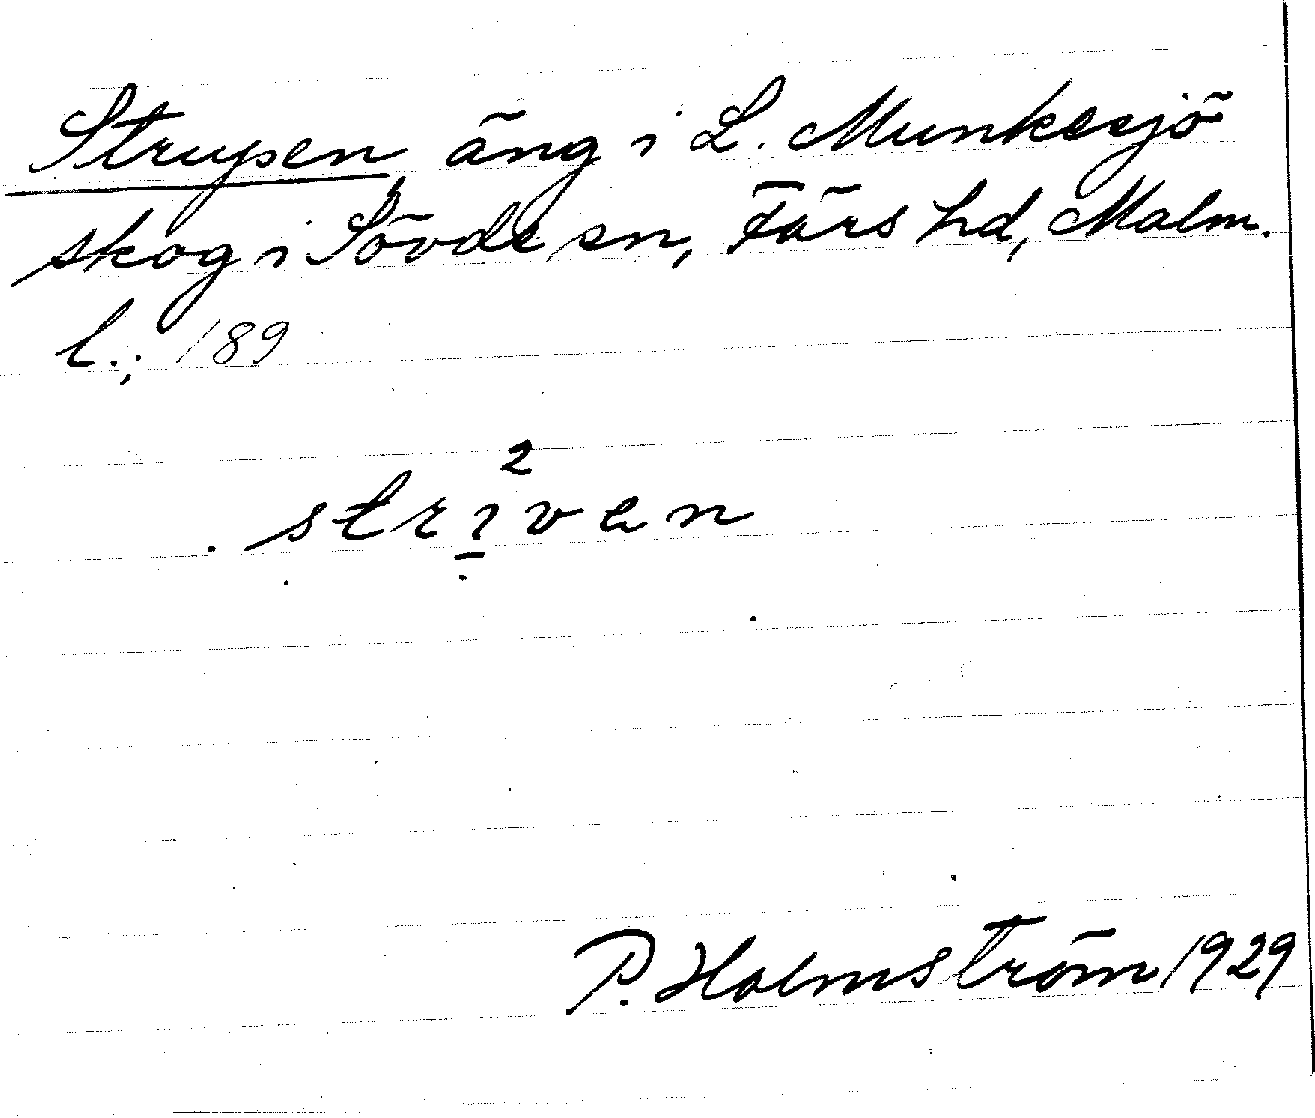 Strupen äng i L. Munkesjö
skog i Sövde sn, Färs hd, Malm.
l.; 189
strıven
2
P. Holmström 1929